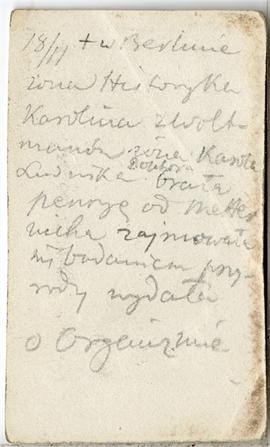 18/11 + w Berlinie
żona Historyka
Karolina z Wolt-
manów żona Karola
Doktora
Ludwika brała
pensyę od Metter
nicha zajmowała
się badaniem przy-
rody wydała
o Organizmie